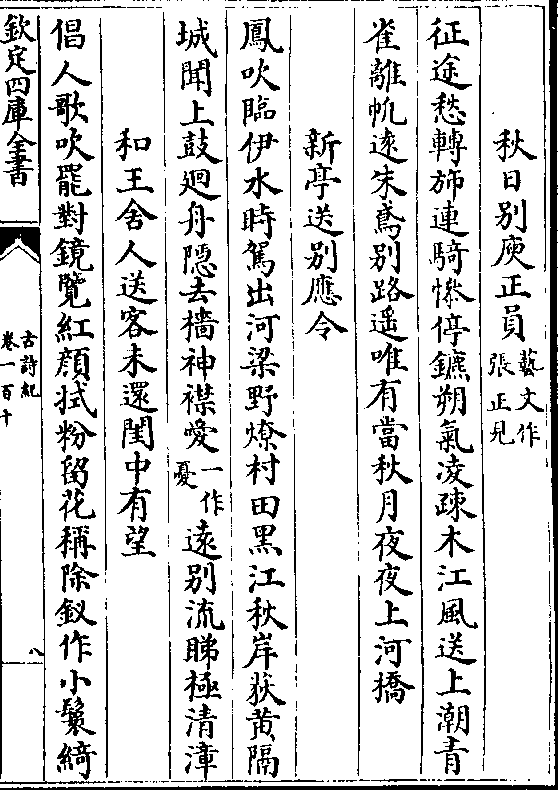 秋日别庾正員藝文作張正見
征途愁轉斾連騎慘停鑣朔氣凌疎木江風送上潮青
雀離帆逺朱鳶别路遥唯有當秋月夜夜上河橋
新亭送别應令
鳳吹臨伊水時駕出河梁野燎村田黒江秋岸荻黄隔
城聞上鼓廻舟隠去檣神襟愛一作憂逺别流睇極清漳
和王舍人送客未還閨中有望
倡人歌吹罷對鏡覽紅顔拭粉留花稱除釵作小鬟綺
欽定四庫全書
古詩紀
卷一百十
八